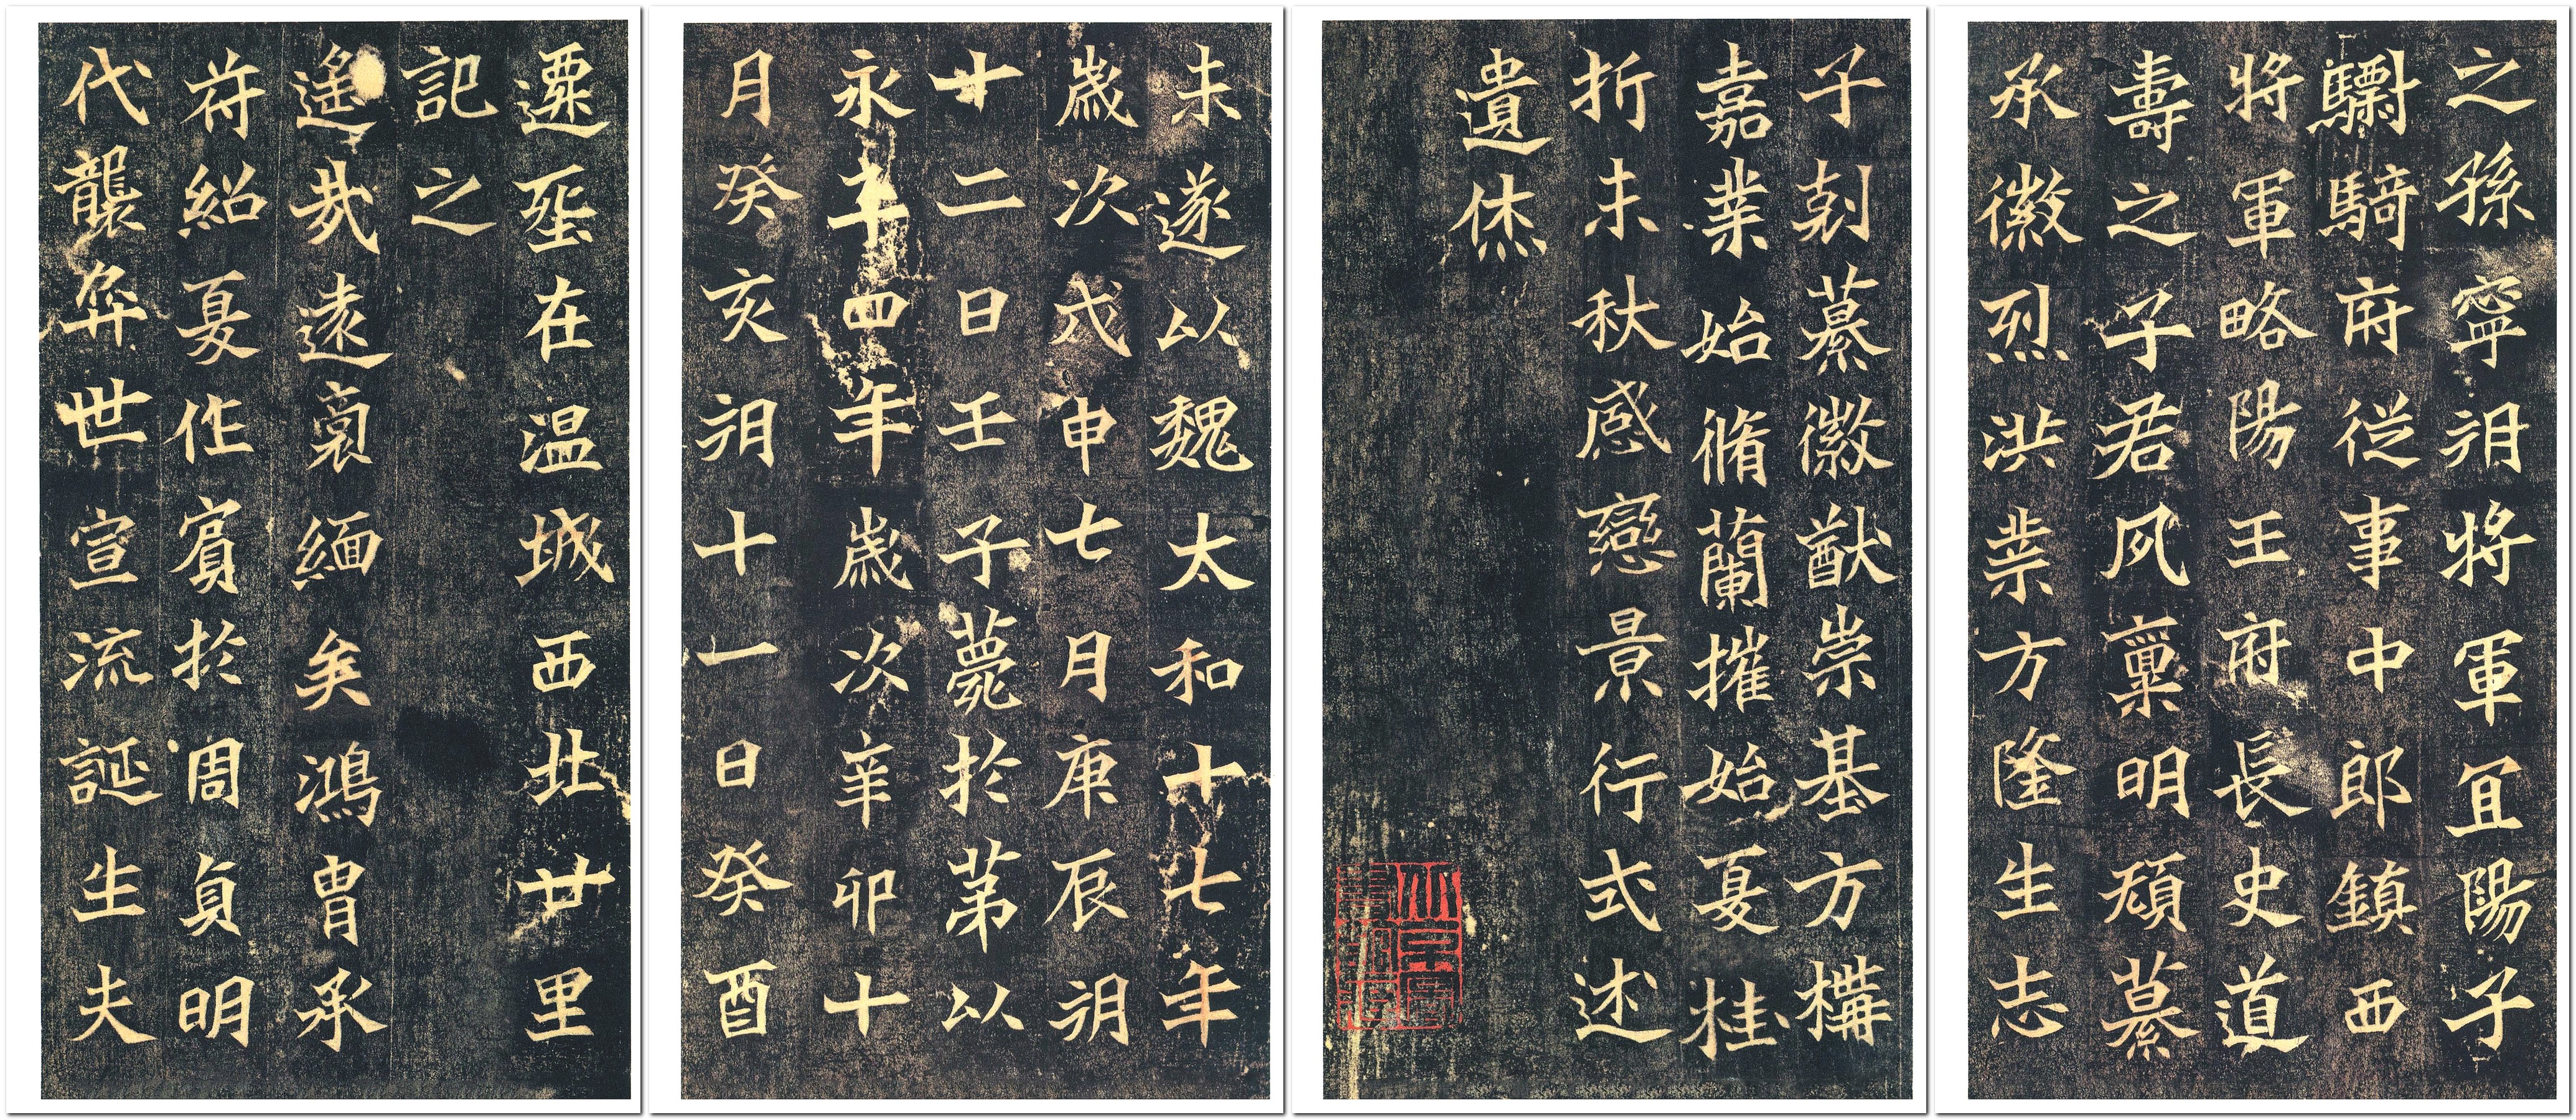 之孫寧朔將軍宜陽子
驃騎府從事中郎鎮西
將軍略陽王府長史道
壽之子君夙稟明頑纂
承徽烈洪業方隆生志
未遂以魏太和十七年
歲次戊申七月庚辰朔
十二日壬子薨於第以
永平四年歲次辛卯十
月癸亥朔十一日癸酉
遷塟在温城西北廿里
記之
遙哉遠裔緬矣鴻胄承
符紹夏作賓於周貞明
代襲弈世宣流誕生夫
子剋纂徽猷崇基方構
嘉業始脩蘭摧始夏桂
折未秋感戀景行式述
遺烋